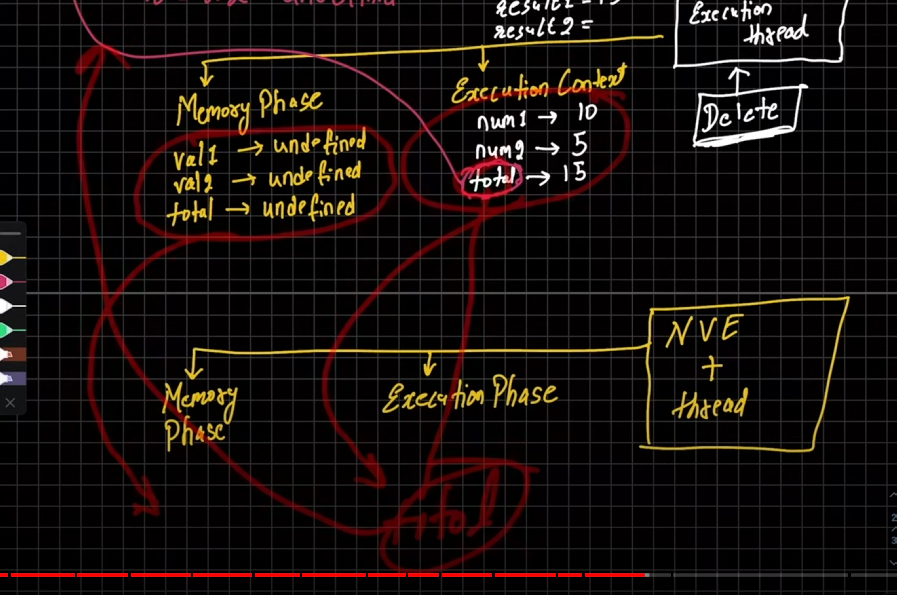 result2 =
Execution
thread
Memory Phase
val1 → undefined
val2 → undefined
total → undefined
Execution Context
num1 → 10
num2 → 5
total → 15
Delete
Memory
Phase
Execution Phase
NVE
+
thread
total
2
3